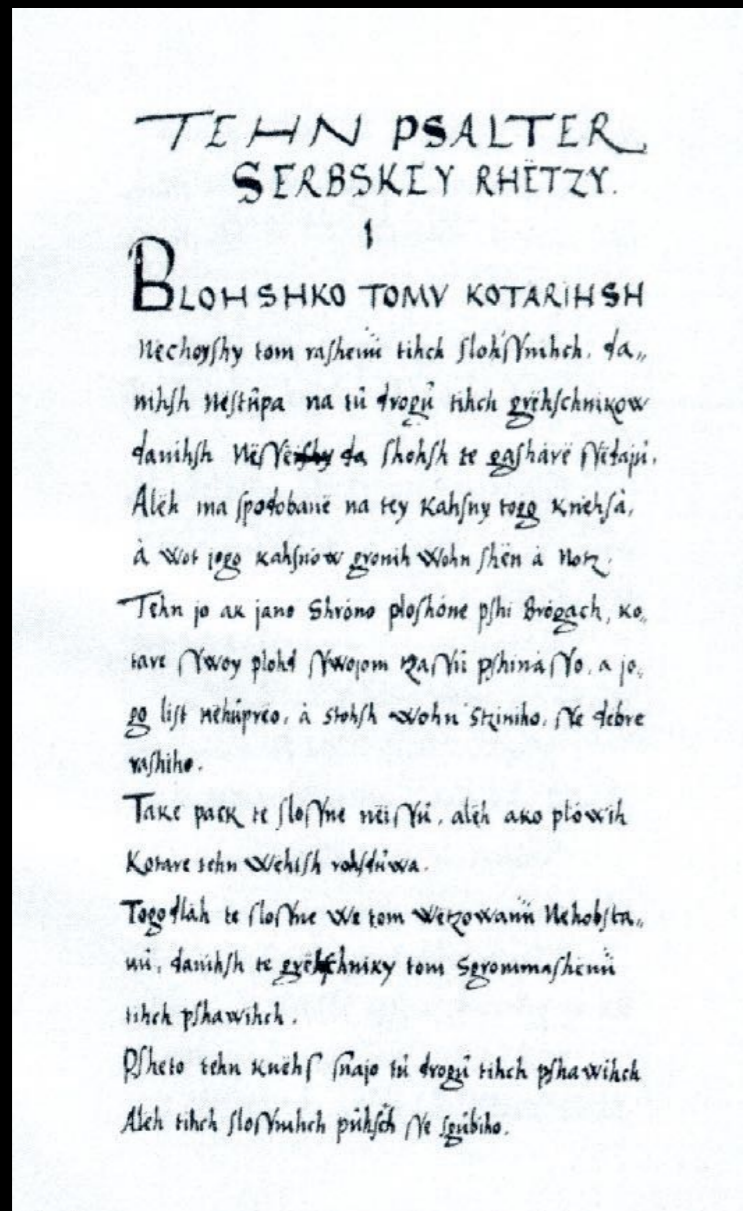 TEHN PSALTER
SERBSKEY RHËTZY.
1
BLOHSHKO TOMV KOTARIHSH
Nëchoƶſhy tom raſhenü tihch ſlohſſnihch, da„
nihſh nëstûpa na tû drogû tihch grëhſchnikow
danihſh da ſhohſh te gaſharë ſſëdajû.
Alëh ma ſpodobanë na tey Kahſny togo Knëhſà,
à wot jogo kahſnow gronih Wohn ſhën à Notz.
Tehn jo ak jano Shróno ploſhóne pſhi Brógach, ko„
tare ſſwoy plohd ſſwojom tzaſſû pſhináſſo, a jo„
go liſt nëhûprëo, à stohſh wohn stziniho, ſſe debre
raſhiho.
Take pack te ſloſſne nëiſſû, alëh ako plówih
Kotare tehn Wëhtſh rohſdûwa.
Togodlàh te ſloſſne we tom Wëtzowanü Nëhobſta„
nû, danihſh te tom Sgrommaſhenü
tihch pſhawihch.
Pſheto tehn Knëhſ ſnajo tû drogû tihch pſhawihch
Alëh tihch ſloſſnihch pûhſch ſſe ſgûbiho.